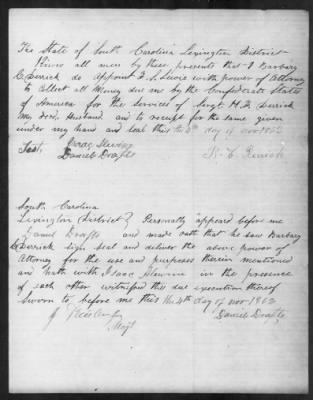 The State of South Carolina Lexington District
Know all men by these presents that I Barbary
C Derrick do Appoint F. S. Lewie with power of Attorney
to Collect all Money due me by the Confederate States
of America for the Services of Sergt H. J. Derrick
my Decd. Husband and to receipt for the same given
under my hand and Seal this the 4th day of nov 1862
Test,
Daniel Drafts
B. C. Derrick
South Carolina
Lexington District } Personally appeared before me
Daniel Drafts and made oath that he saw Barbary
C Derrick sign seal and deliver the above power of
Attorney for the use and purposes therein mentioned
and hath with Isaac in the presence
of each other witnessed the due execution thereof
Sworn to before me this the 4th day of nov 1862
Daniel Drafts
Majt